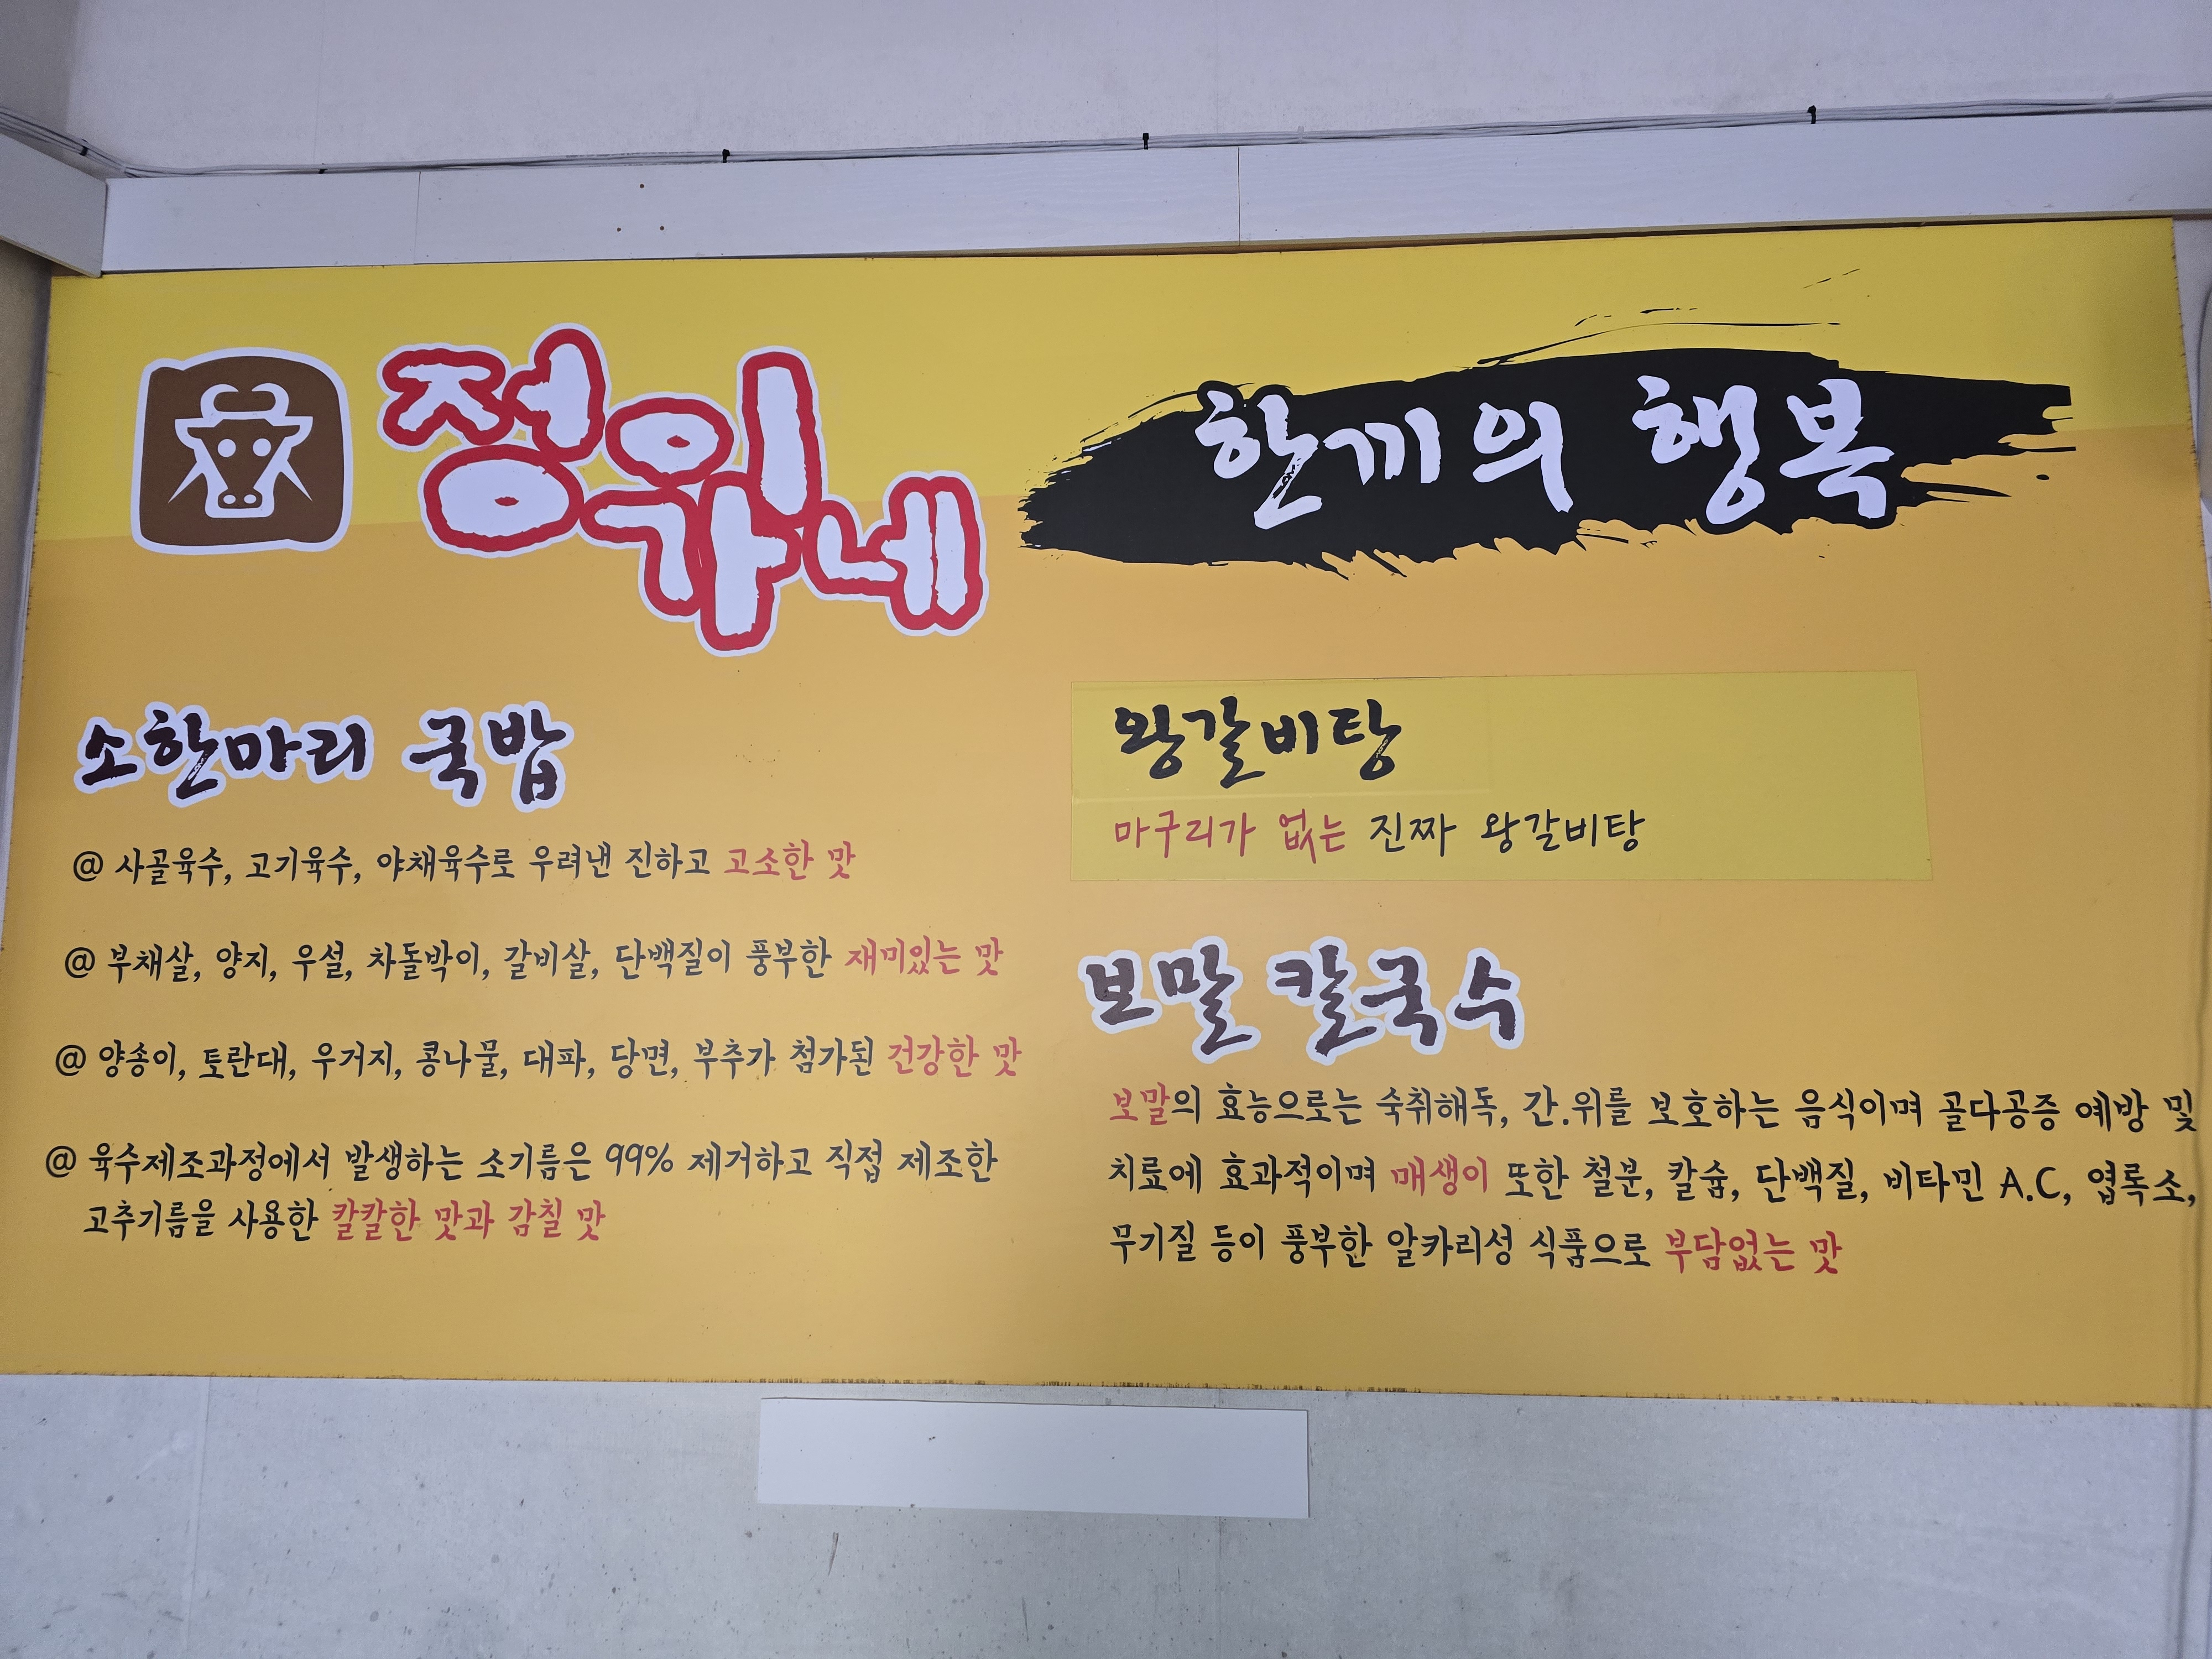 정위가네
한끼의 행복
소한마리 국밥
@ 사골육수, 고기육수, 야채육수로 우려낸 진하고 고소한 맛
@ 부채살, 양지, 우설, 차돌박이, 갈비살, 단백질이 풍부한 재미있는 맛
@ 양송이, 토란대, 우거지, 콩나물, 대파, 당면, 부추가 첨가된 건강한 맛
@ 육수제조과정에서 발생하는 소기름은 99% 제거하고 직접 제조한
고추기름을 사용한 칼칼한 맛과 감칠 맛
왕갈비탕
마구리가 없는 진짜 왕갈비탕
보말 칼국수
보말의 효능으로는 숙취해독, 간.위를 보호하는 음식이며 골다공증 예방 및
치료에 효과적이며 매생이 또한 철분, 칼슘, 단백질, 비타민 A.C, 엽록소,
무기질 등이 풍부한 알카리성 식품으로 부담없는 맛